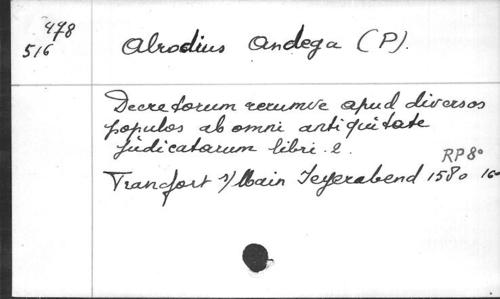 478
516
Alrodius Andega (P).
Decretorum rerumve apud diversos
populos ab omni antiquitate
judicatarum libri 2.
RP 8°
Francfort s/Main Feyerabend 1580 16°